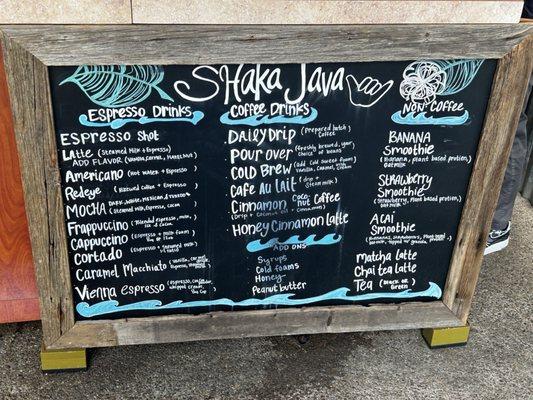 SHaka Java
Espresso Drinks
Espresso Shot
Latte (Steamed Milk + Espresso)
ADD FLAVOR (Vanilla, Caramel, Hazelnut)
Americano (Hot Water + Espresso)
Redeye (Natural Coffee + Espresso)
MOCHA
(Steamed Milk, Espresso, Cocoa)
Frappuccino (Blended espresso, milk, ice
Cappuccino (Espresso + milk foam
Cortado (Espresso + steamed milk
Caramel Macchiato (Vanilla,
Vienna Espresso (Espresso,
Coffee Drinks
Daily Drip (Prepared batch
Coffee
Pour Over (freshly brewed, your
choice of beans
Cold Brew (add Cold Foam
Vanilla, Caramel, Cream
Cafe Au Lait (drip +
Steam milk)
Cinnamon Coconut Coffee
(Drip + Coconut Oil + Cinnamon)
Honey Cinnamon Latte
Add ons
Syrups
Cold foams
Honey
Peanut butter
Non Coffee
BANANA
Smoothie
(Banana, plant based protein,
oatmilk
Strawberry
Smoothie
(Strawberry, Plant based protein,
Acai
Smoothie
Matcha latte
Chai tea latte
Tea (Black or Green)